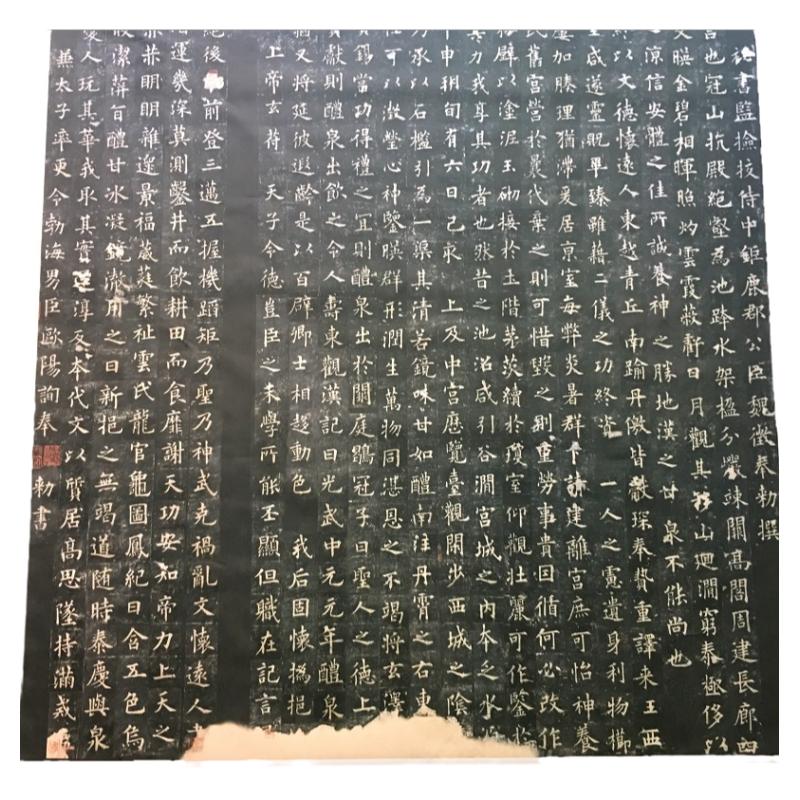 祕書監撿挍侍中鉅鹿郡公臣魏徵奉勅撰
宮也冠山抗殿絕壑為池跨水架楹分巖竦闕高閣周建長廊四
交暎金碧相暉照灼雲霞蔽虧日月觀其移山迴澗窮泰極侈以
涼信安體之佳所誠養神之勝地漢之甘泉不能尚也
終以文德懷遠人東越青丘南踰丹徼皆獻琛奉贄重譯來王西
咸遂靈貺畢臻雖藉二儀之功終資一人之慮遺身利物櫛
屢加腠理猶滯爰居京室每弊炎暑群下請建離宮庶可怡神養
舊宮營於曩代棄之則可惜毀之則重勞事貴因循何必改作
礫以塗泥玉砌接於土階茅茨續於瓊室仰觀壯麗可作鑒於
力我享其功者也然昔之池沼咸引谷澗宮城之內本乏水源
申朔旬有六日己亥上及中宮歷覽臺觀閑步西城之陰
乃承以石檻引為一渠其清若鏡味甘如醴南注丹霄之右東
可以澂瑩心神鑒暎群形潤生萬物同湛恩之不竭將玄澤
錫當功得禮之宜則醴泉出於闕庭鶡冠子曰聖人之德上
獻則醴泉出飲之令人壽東觀漢記曰光武中元元年醴泉
又將延彼遐齡是以百辟卿士相趍動色我后固懷撝挹
上帝玄符天子令德豈臣之末學所能丕顯但職在記言
絕後前登三邁五握機蹈矩乃聖乃神武克禍亂文懷遠人書
運幾深莫測鑿井而飲耕田而食靡謝天功安知帝力上天之
赫明明雜遝景福葳蕤繁祉雲氏龍官龜圖鳳紀日含五色烏
潔萍旨醴甘冰凝鏡澈用之日新挹之無竭道随時泰慶與泉
人玩其華我取其實還淳反本代文以質居高思墜持滿戒溢
兼太子率更令勃海男臣歐陽詢奉勅書